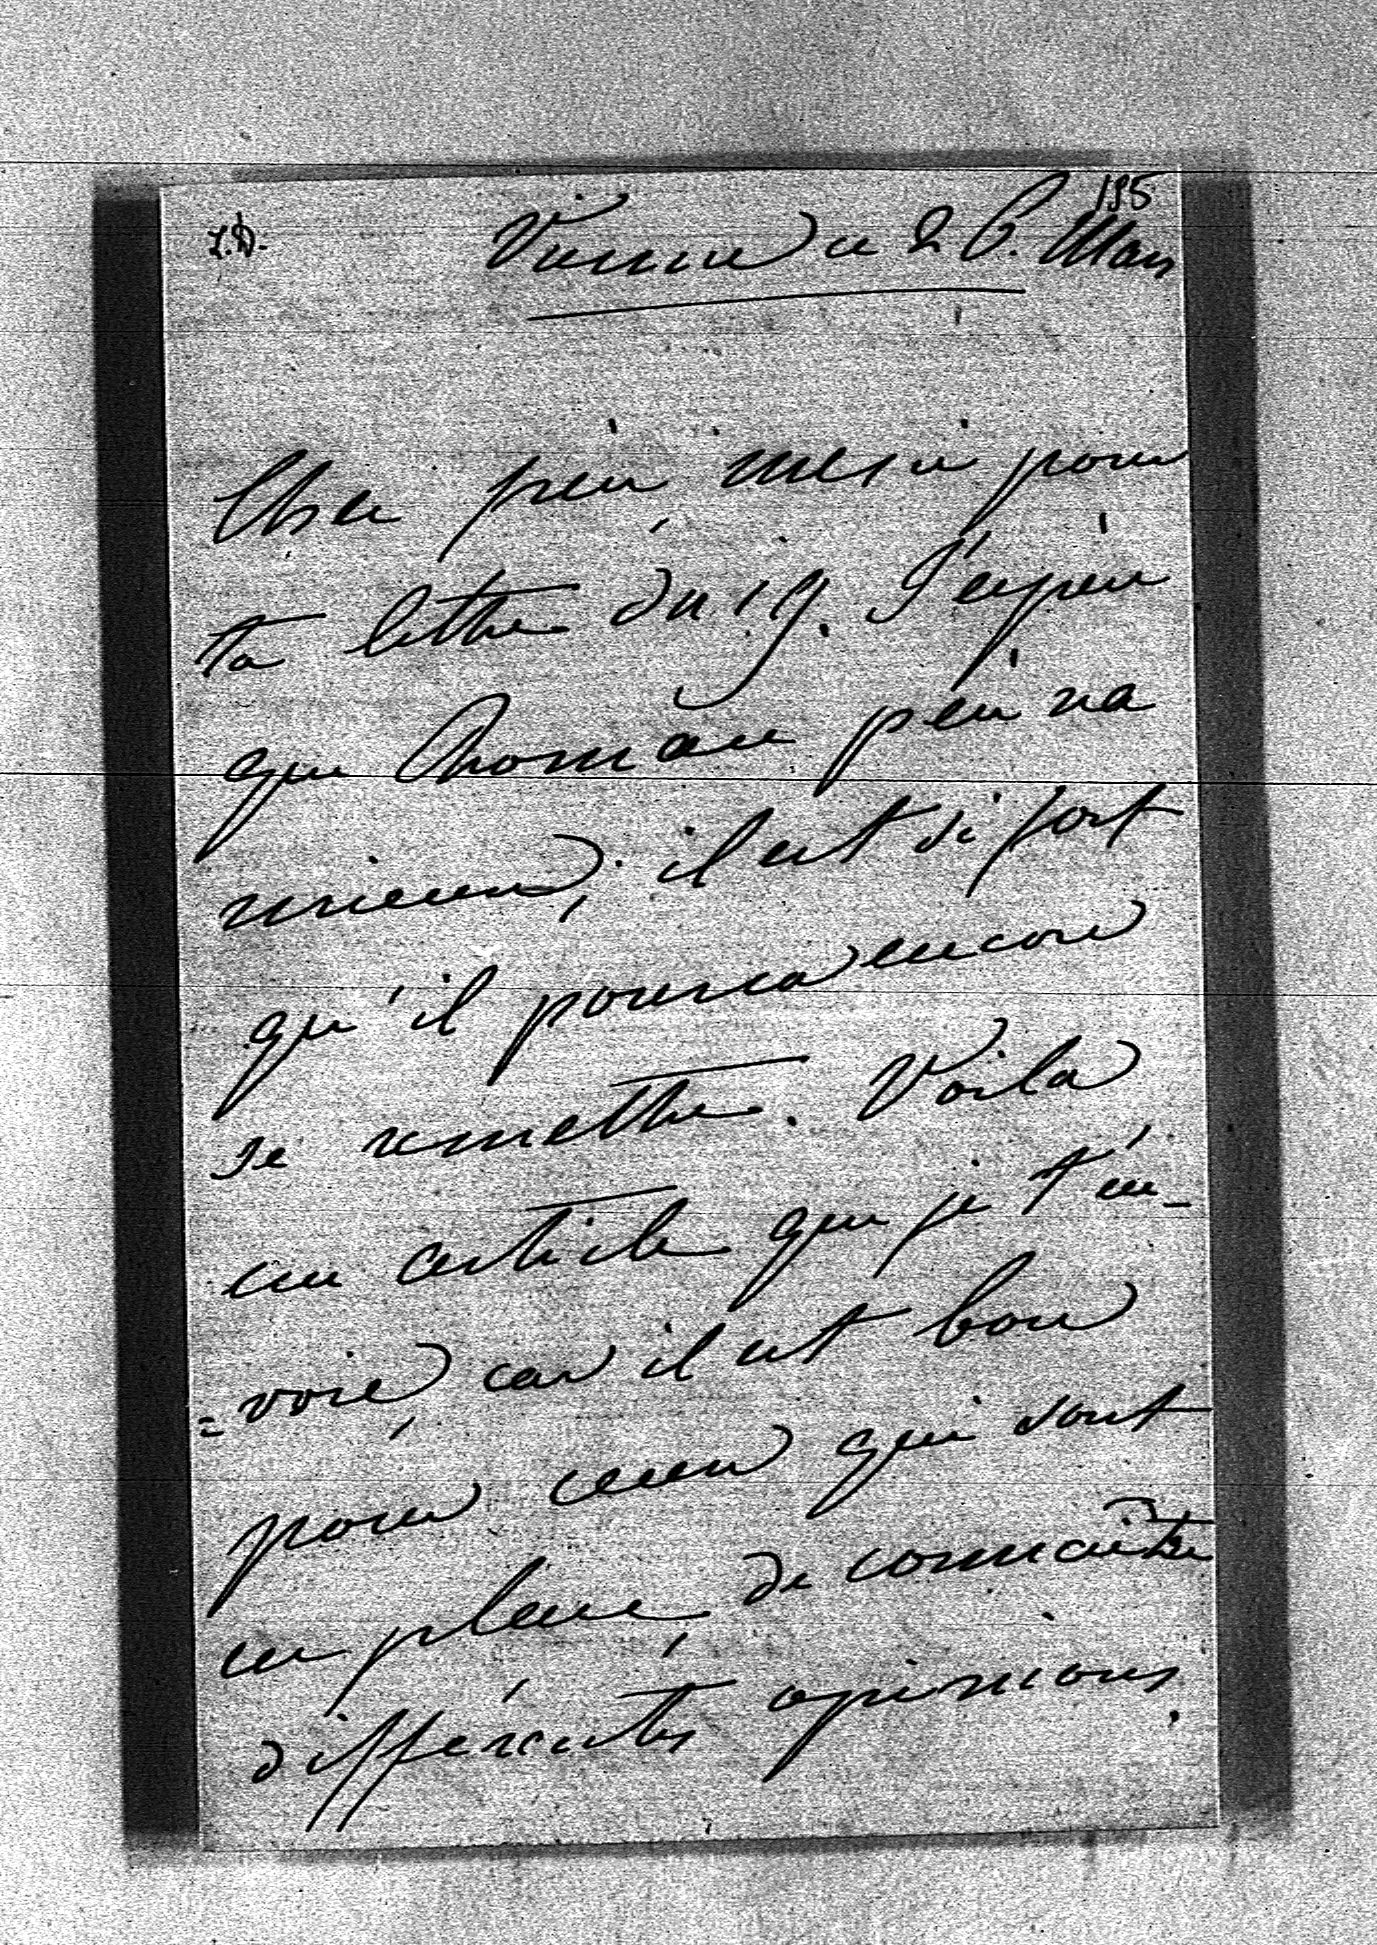 195
J.D. Vienne ce 26. Mars
Cher père, merci pour
ta lettre du 19. J'espère
que Thomàn père va
mieux, il est si fort
qu'il pourra encore
se remettre. Voila
un article que je t'en-
=voie, car il est bon
pour ceux qui sont
en place, de connaître
différentes opinions.